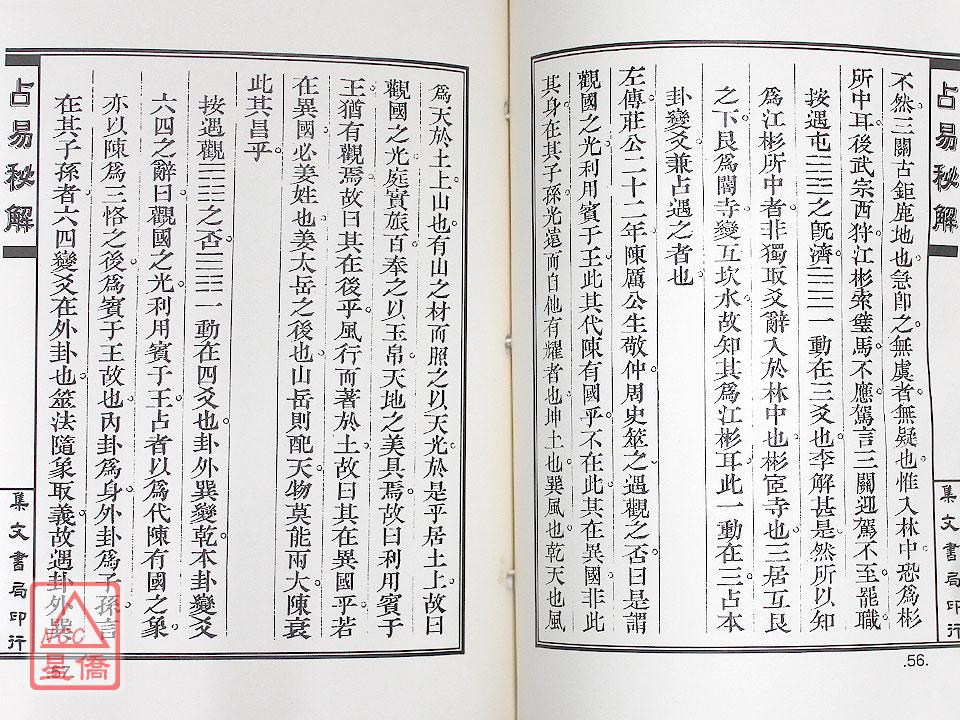 占易秘解
不然三關古鉅鹿地也急卽之無虞者無疑也惟入林中恐爲彬
所中耳後武宗西狩江彬索璧馬不應駕言三關迎駕不至罷職
按遇屯☳☵之旣濟☲☵一動在三爻也李解甚是然所以知
爲江彬所中者非獨取爻辭入於林中也彬宦寺也三居互艮
之下艮爲閽寺變互坎水故知其爲江彬耳此一動在三占本
卦變爻兼占遇之者也
左傳莊公二十二年陳厲公生敬仲周史筮之遇觀之否曰是謂
觀國之光利用賓于王此其代陳有國乎不在此其在異國非此
其身在其子孫光遠而自他有耀者也坤土也巽風也乾天也風
集文書局印行
.56.
占易秘解
爲天於土上山也有山之材而照之以天光於是乎居土上故曰
觀國之光庭實旅百奉之以玉帛天地之美具焉故曰利用賓于
王猶有觀焉故曰其在後乎風行而著於土故曰其在異國乎若
在異國必姜姓也姜太岳之後也山岳則配天物莫能兩大陳衰
此其昌乎
按遇觀☷☴之否☷☰一動在四爻也卦外巽變乾本卦變爻
六四之辭曰觀國之光利用賓于王占者以爲代陳有國之象
亦以陳爲三恪之後爲賓于王故也內卦爲身外卦爲子孫言
在其子孫者六四變爻在外卦也筮法隨象取義故遇卦外巽
集文書局印行
.57.
NCC
星僑